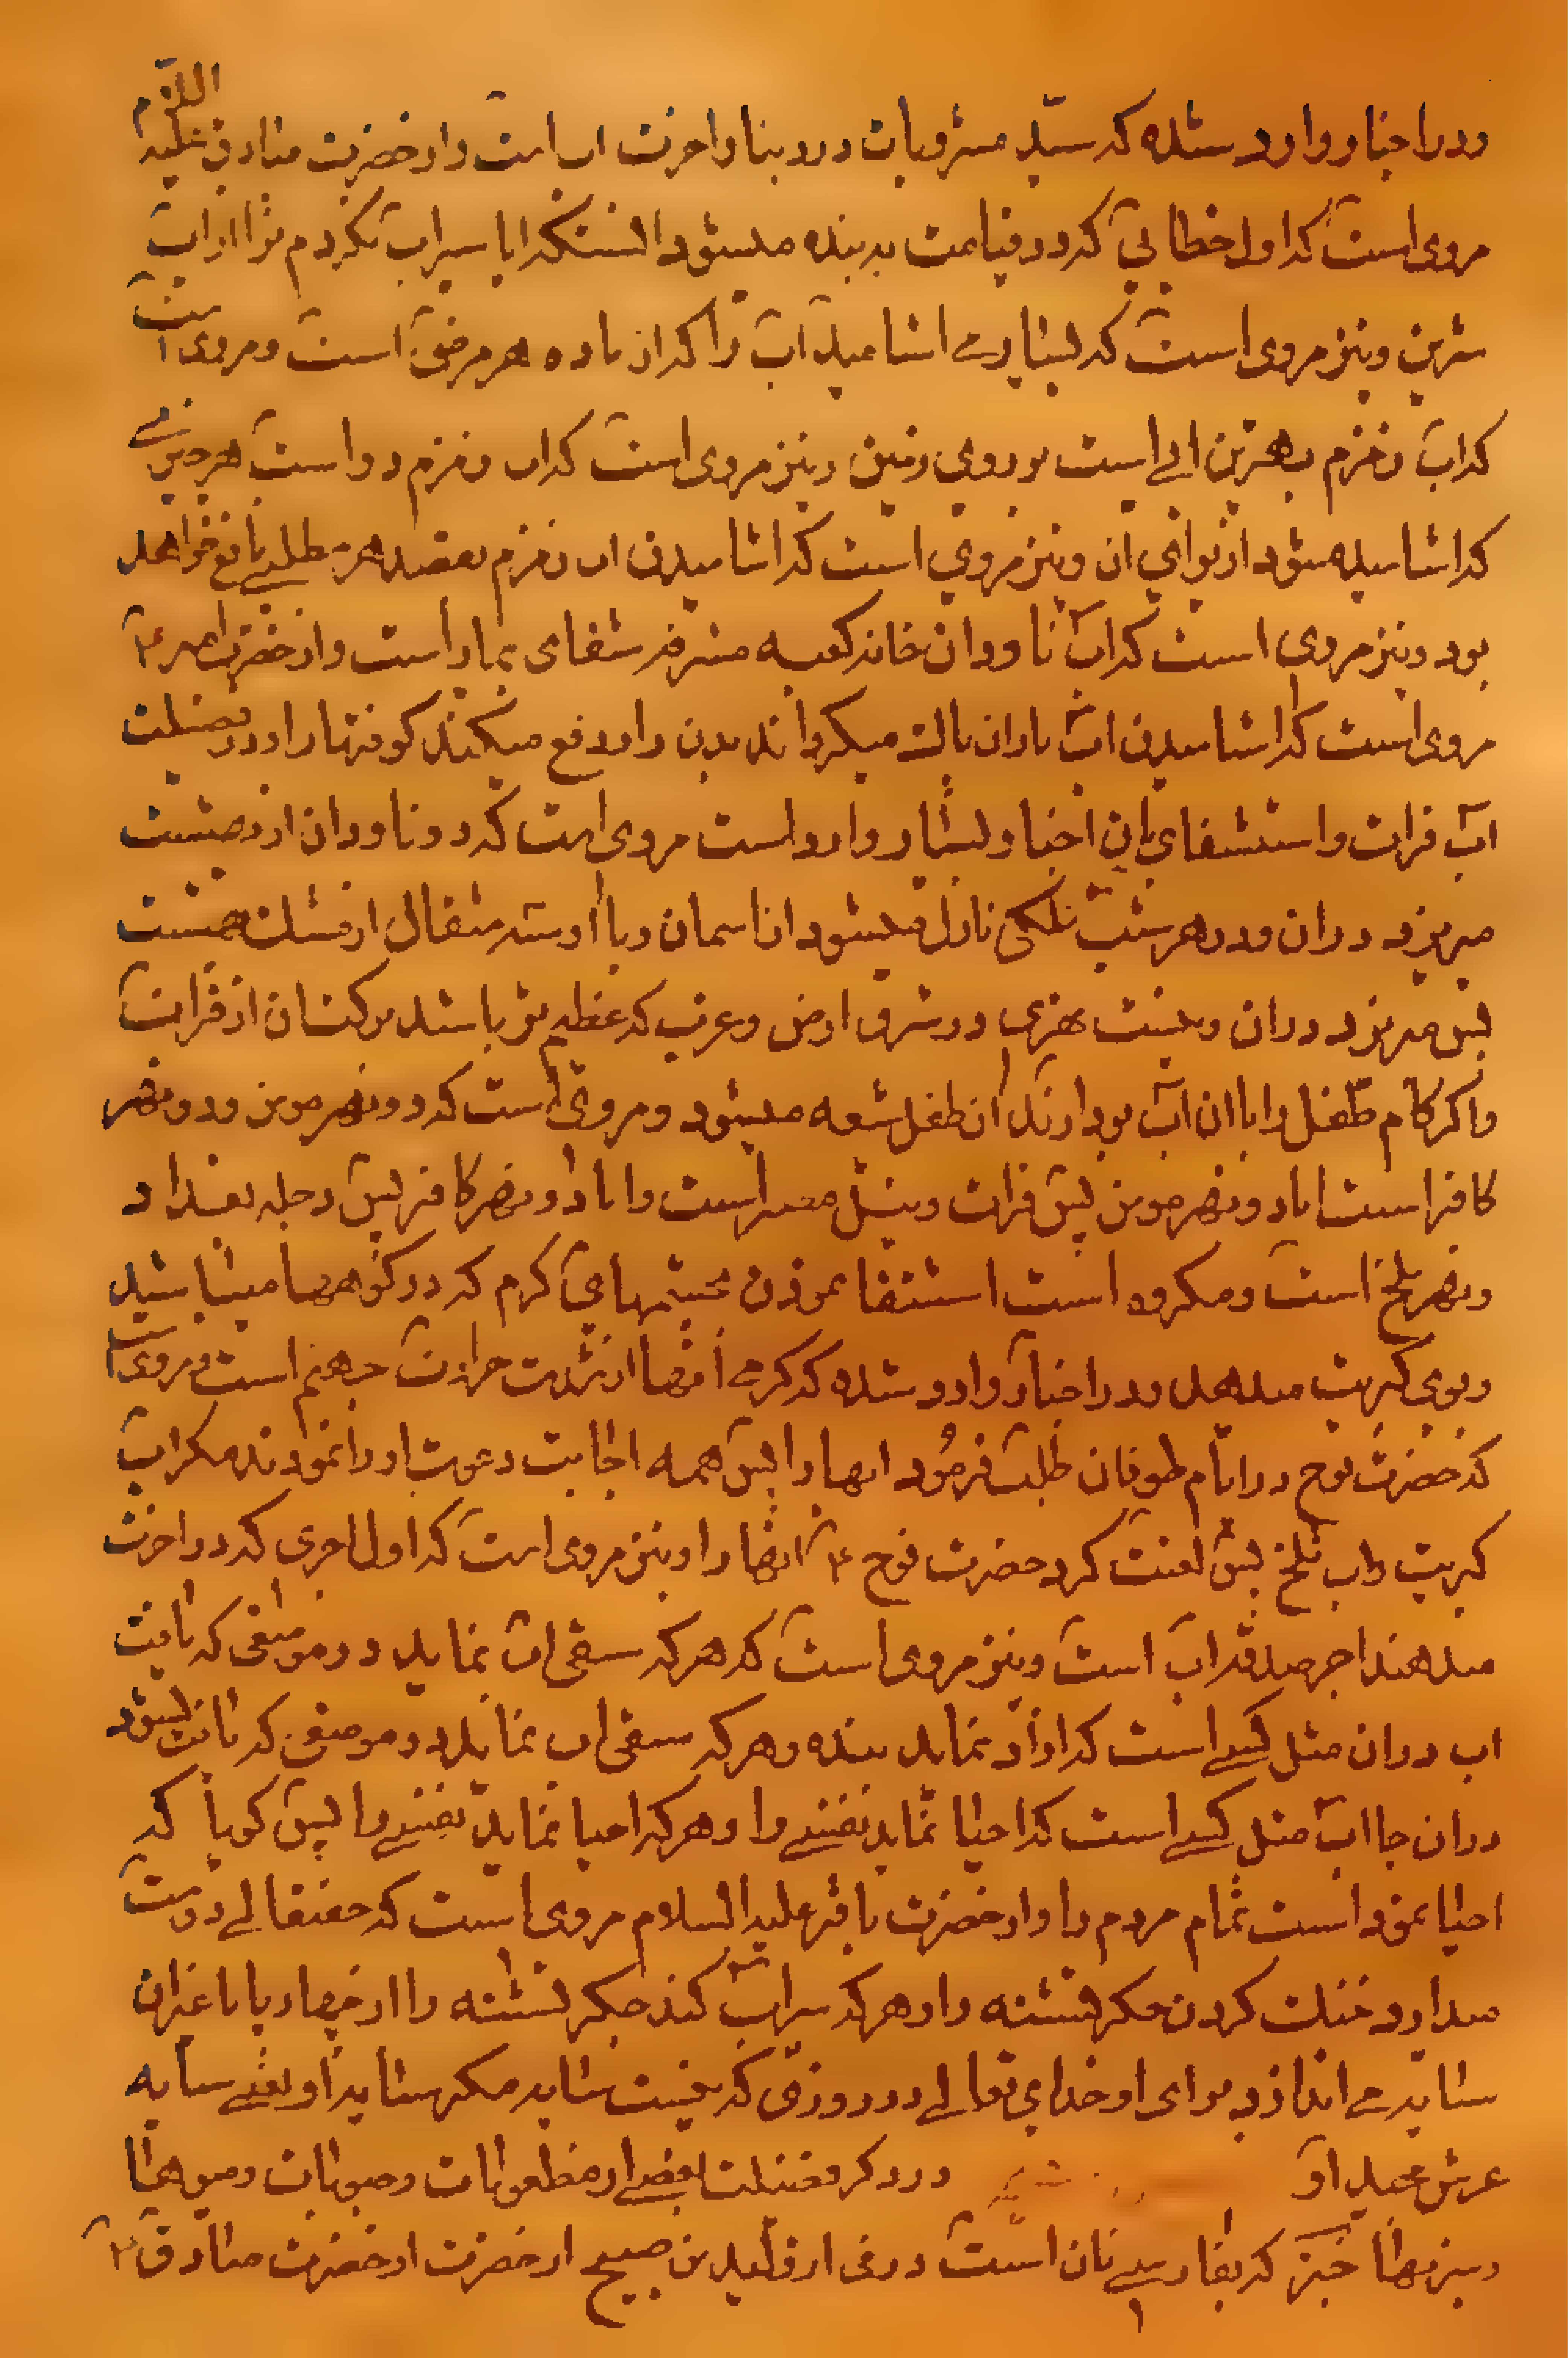 ودر اخبار وارد شده که سید مشروبات در دنیا واخرت اب است واز حضرت صادق علیه السّلام
مروی است که اول خطابی که در قیامت به بنده میشود انستکه ایا سیراب نکردم ترا از اب
شیرین ونیز مروی است که بسیار می اشامید آب را که ان ماده هر مرضی است ومروی است
که اب زمزم بهترین ابی است بر روی زمین ونیز مروی است که اب زمزم دواست هر چیزی
که اشامیده شود از برای ان ونیز مروی است که اشامیدن اب زمزم بقصد هر مطلبی نافع خواهد
بود ونیز مروی است که اب ناودان خانه کعبه مشرفه شفای بیمار است واز حضرت امیر ع
مروی است که اشامیدن اب باران پاک میگرداند بدن را ودفع میکند کوفتها را ودر فضیلت
اب فرات واستشفای بان اخبار بسیار وارد است مروی است که دو ناودان از بهشت
میریزد در ان ودر هر شب ملکی نازل میشود از اسمان وبا او سه مثقال از مشک بهشت
پس میریزد در ان ونیست نهری در شرق ارض وغرب که عظیم تر باشد برکت ان از فرات
واگر کام طفل را با ان اب بردارند ان طفل شیعه میشود ومروی است که دو نهر مومن ودو نهر
کافر است اما دو نهر مومن پس فرات ونیل مصر است واما دو نهر کافر پس دجله بغداد
ونهر بلخ است ومکروه است استشفا نمودن بچشمهای کرم که در کوهها میباشد
وبوی کبریت میدهد ودر اخبار وارد شده که کرمی انها از شدت حرارت جهنم است ومروی است
که حضرت نوح در ایام طوفان طلب فرمُود ابها را پس همه اجابت دعوت او را نمودند مکر اب
کبریت واب تلخ پس لعنت کرد حضرت نوح ع انها را ونیز مروی است که اول اجری که در اخرت
میدهند اجر صدقه اب است ونیز مروی است که هر که سقی اب نماید در موضعی که یافت
اب در ان مثل کسی است که ازاد نماید بنده وهر که سقی اب نماید در موضعی که یافت نشود
در ان جا اب مثل کسی است که احیا نماید نفسی را وهر که احیا نماید نفسی را پس کویا که
احیا نموده است تمام مردم را واز حضرت باقر علیه السلام مروی است که حقتعالی دوست
میدارد خنک کردن جکر تشنه را وهر که سیراب کند جکر تشنه را از چهارپا یا غیر ان
سایه می اندازد برای او خدای تعالی در روزی که نیست سایه مکر سایه او یعنی سایه
عرش مجید او در ذکر فضیلت بعضی از مطعومات وحبوبات ومیوه ها
وسبزیها خبز که بفارسی نان است در فی از ولید بن صبیح از حضرت از حضرت صادق ع